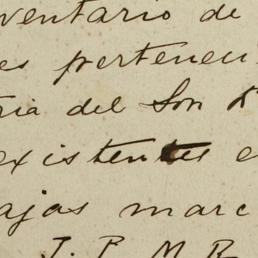 ventario de
es pertenen
ria del Son
existentes e
ajas marc
J. P. M. R.